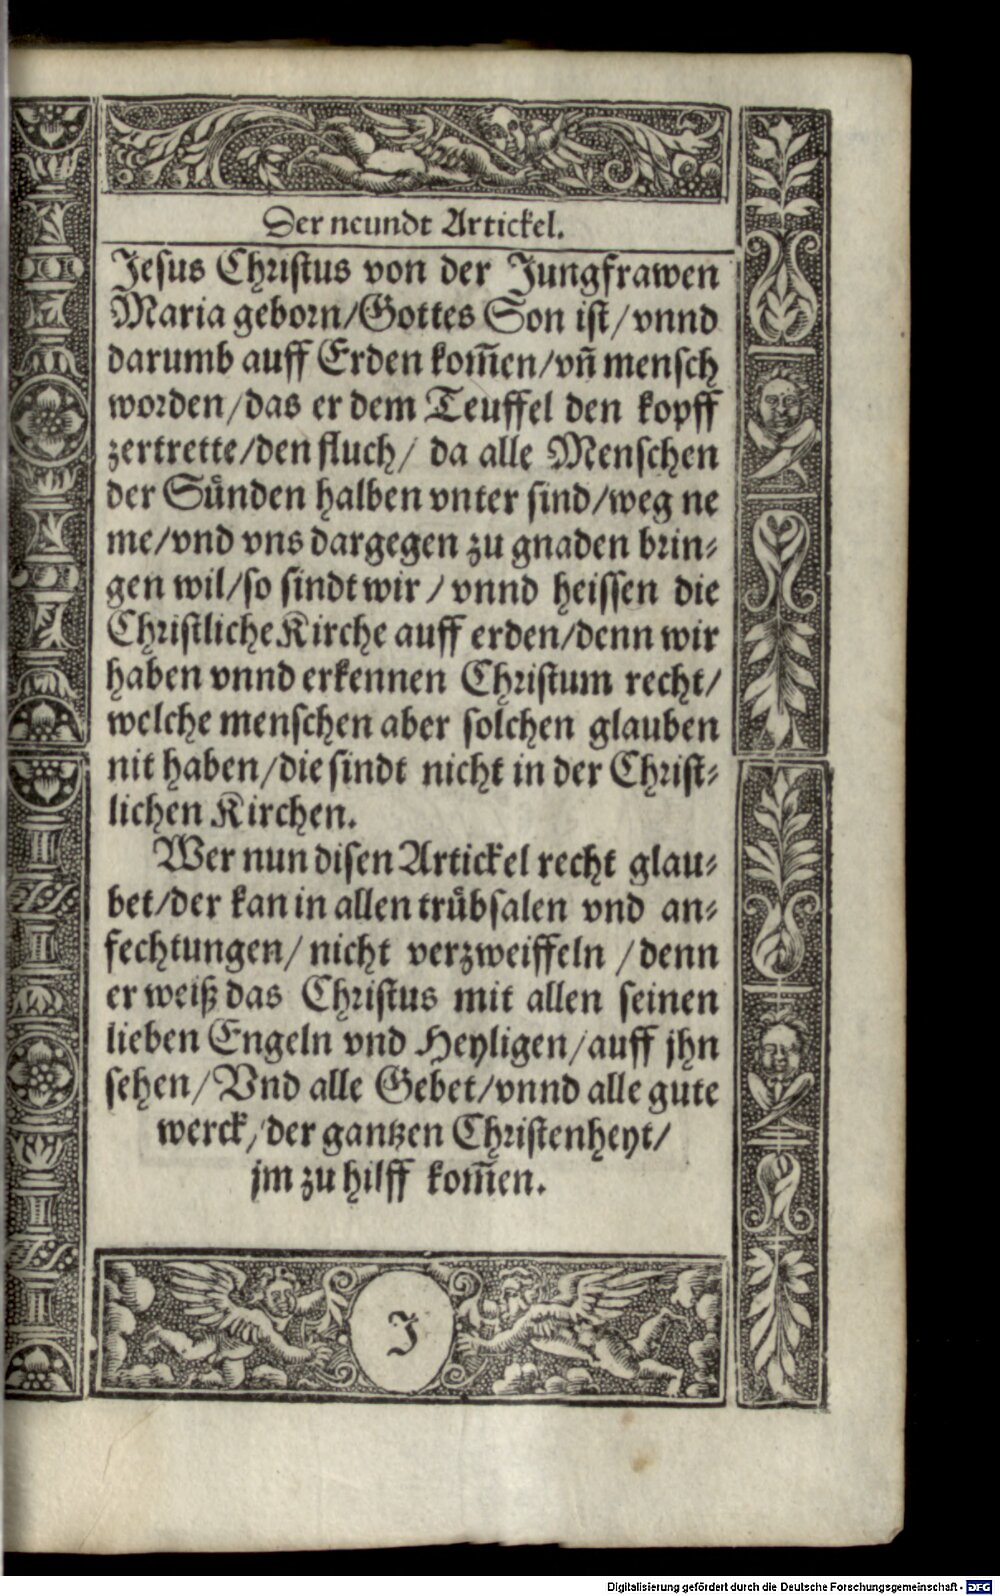 Der neundt Artickel.
Jesus Christus von der Jungfrawen
Maria geborn/Gottes Son ist/vnnd
darumb auff Erden kom̄en/vn̄ mensch
worden/das er dem Teuffel den kopff
zertrette/den fluch/ da alle Menschen
der Sünden halben vnter sind/weg ne
me/vnd vns dargegen zu gnaden brin⸗
gen wil/so sindt wir/vnnd heissen die
Christliche Kirche auff erden/denn wir
haben vnnd erkennen Christum recht/
welche menschen aber solchen glauben
nit haben/die sindt nicht in der Christ⸗
lichen Kirchen.
Wer nun disen Artickel recht glau⸗
bet/der kan in allen trübsalen vnd an⸗
fechtungen/ nicht verzweiffeln /denn
er weiß das Christus mit allen seinen
lieben Engeln vnd Heyligen/auff jhn
sehen/Vnd alle Gebet/vnnd alle gute
werck/der gantzen Christenheyt/
jm zu hilff kom̄en.
J
Digitalisierung gefördert durch die Deutsche Forschungsgemeinschaft - DFG